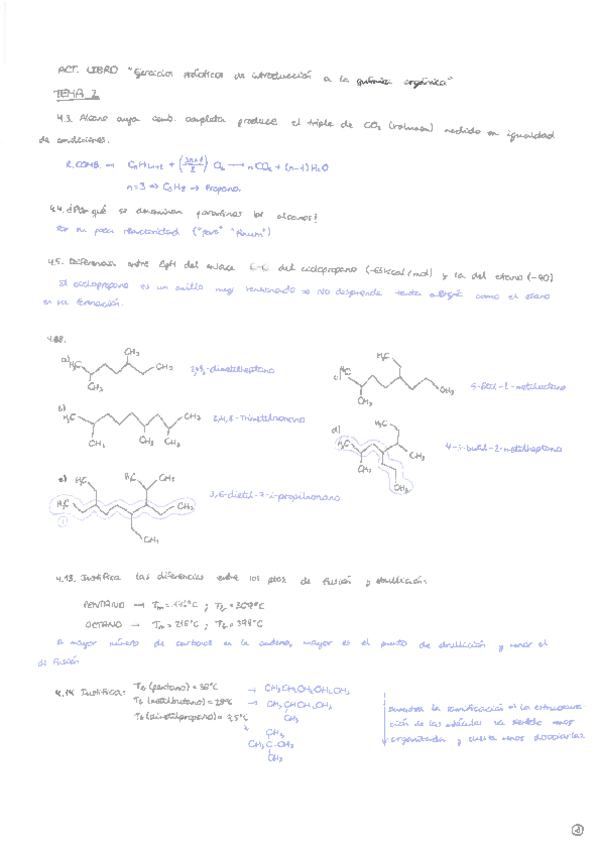 ACT. LIBRO "Ejercicios prácticos de introducción a la química orgánica"
TEMA 2
4.3. Alcano cuya comb. completa produce el triple de CO₂ (volumen) medido en igualdad
de condiciones.
R. COMB. → CnH2n+2 + O₂ → nCO₂ + (n-1)H₂O
n=3 → C₃H₈ → Propano.
4.4. ¿Por qué se denominan parafinas los alcanos?
Por su poca reactividad ("para" "finum")
4.5. Diferencia entre del enlace C-C del ciclopropano (-65 kcal/mol) y la del etano (-90)
El ciclopropano es un anillo muy tensionado → No desprende tanta energía como el etano
en su formación.
a) H₃C CH₃ CH₃ CH₃ -dimetilheptano
c) H₃C H₃C CH₃ CH₃ 5-Etil-2-metiloctano
b) H₃C CH₃ CH₃ CH₃ CH₃ 2,4,8-Trimetilnonano
d) H₃C H₃C CH₃ CH₃ CH₃ 4-i-butil-2-metilheptano
e) H₃C H₃C H₃C CH₃ CH₃ CH₃ 3,6-dietil-7-i-propilnonano
4.13. Justifica las diferencias entre los ptos. de fusión y ebullición:
PENTANO →
OCTANO →
A mayor número de carbonos en la cadena, mayor es el punto de ebullición y menor el
de fusión
4.14 Justifica: (pentano) = 36°C → CH₃CH₂CH₂CH₂CH₃
(metilbutano) = 28°C → CH₃CHCH₂CH₃
CH₃
(dimetilpropano) = 9,5°C
CH₃
CH₃C-CH₃
CH₃
Aumenta la ramificación → la estructura-
ción de las moléculas se vuelve menos
organizada y cuesta menos disociarlas